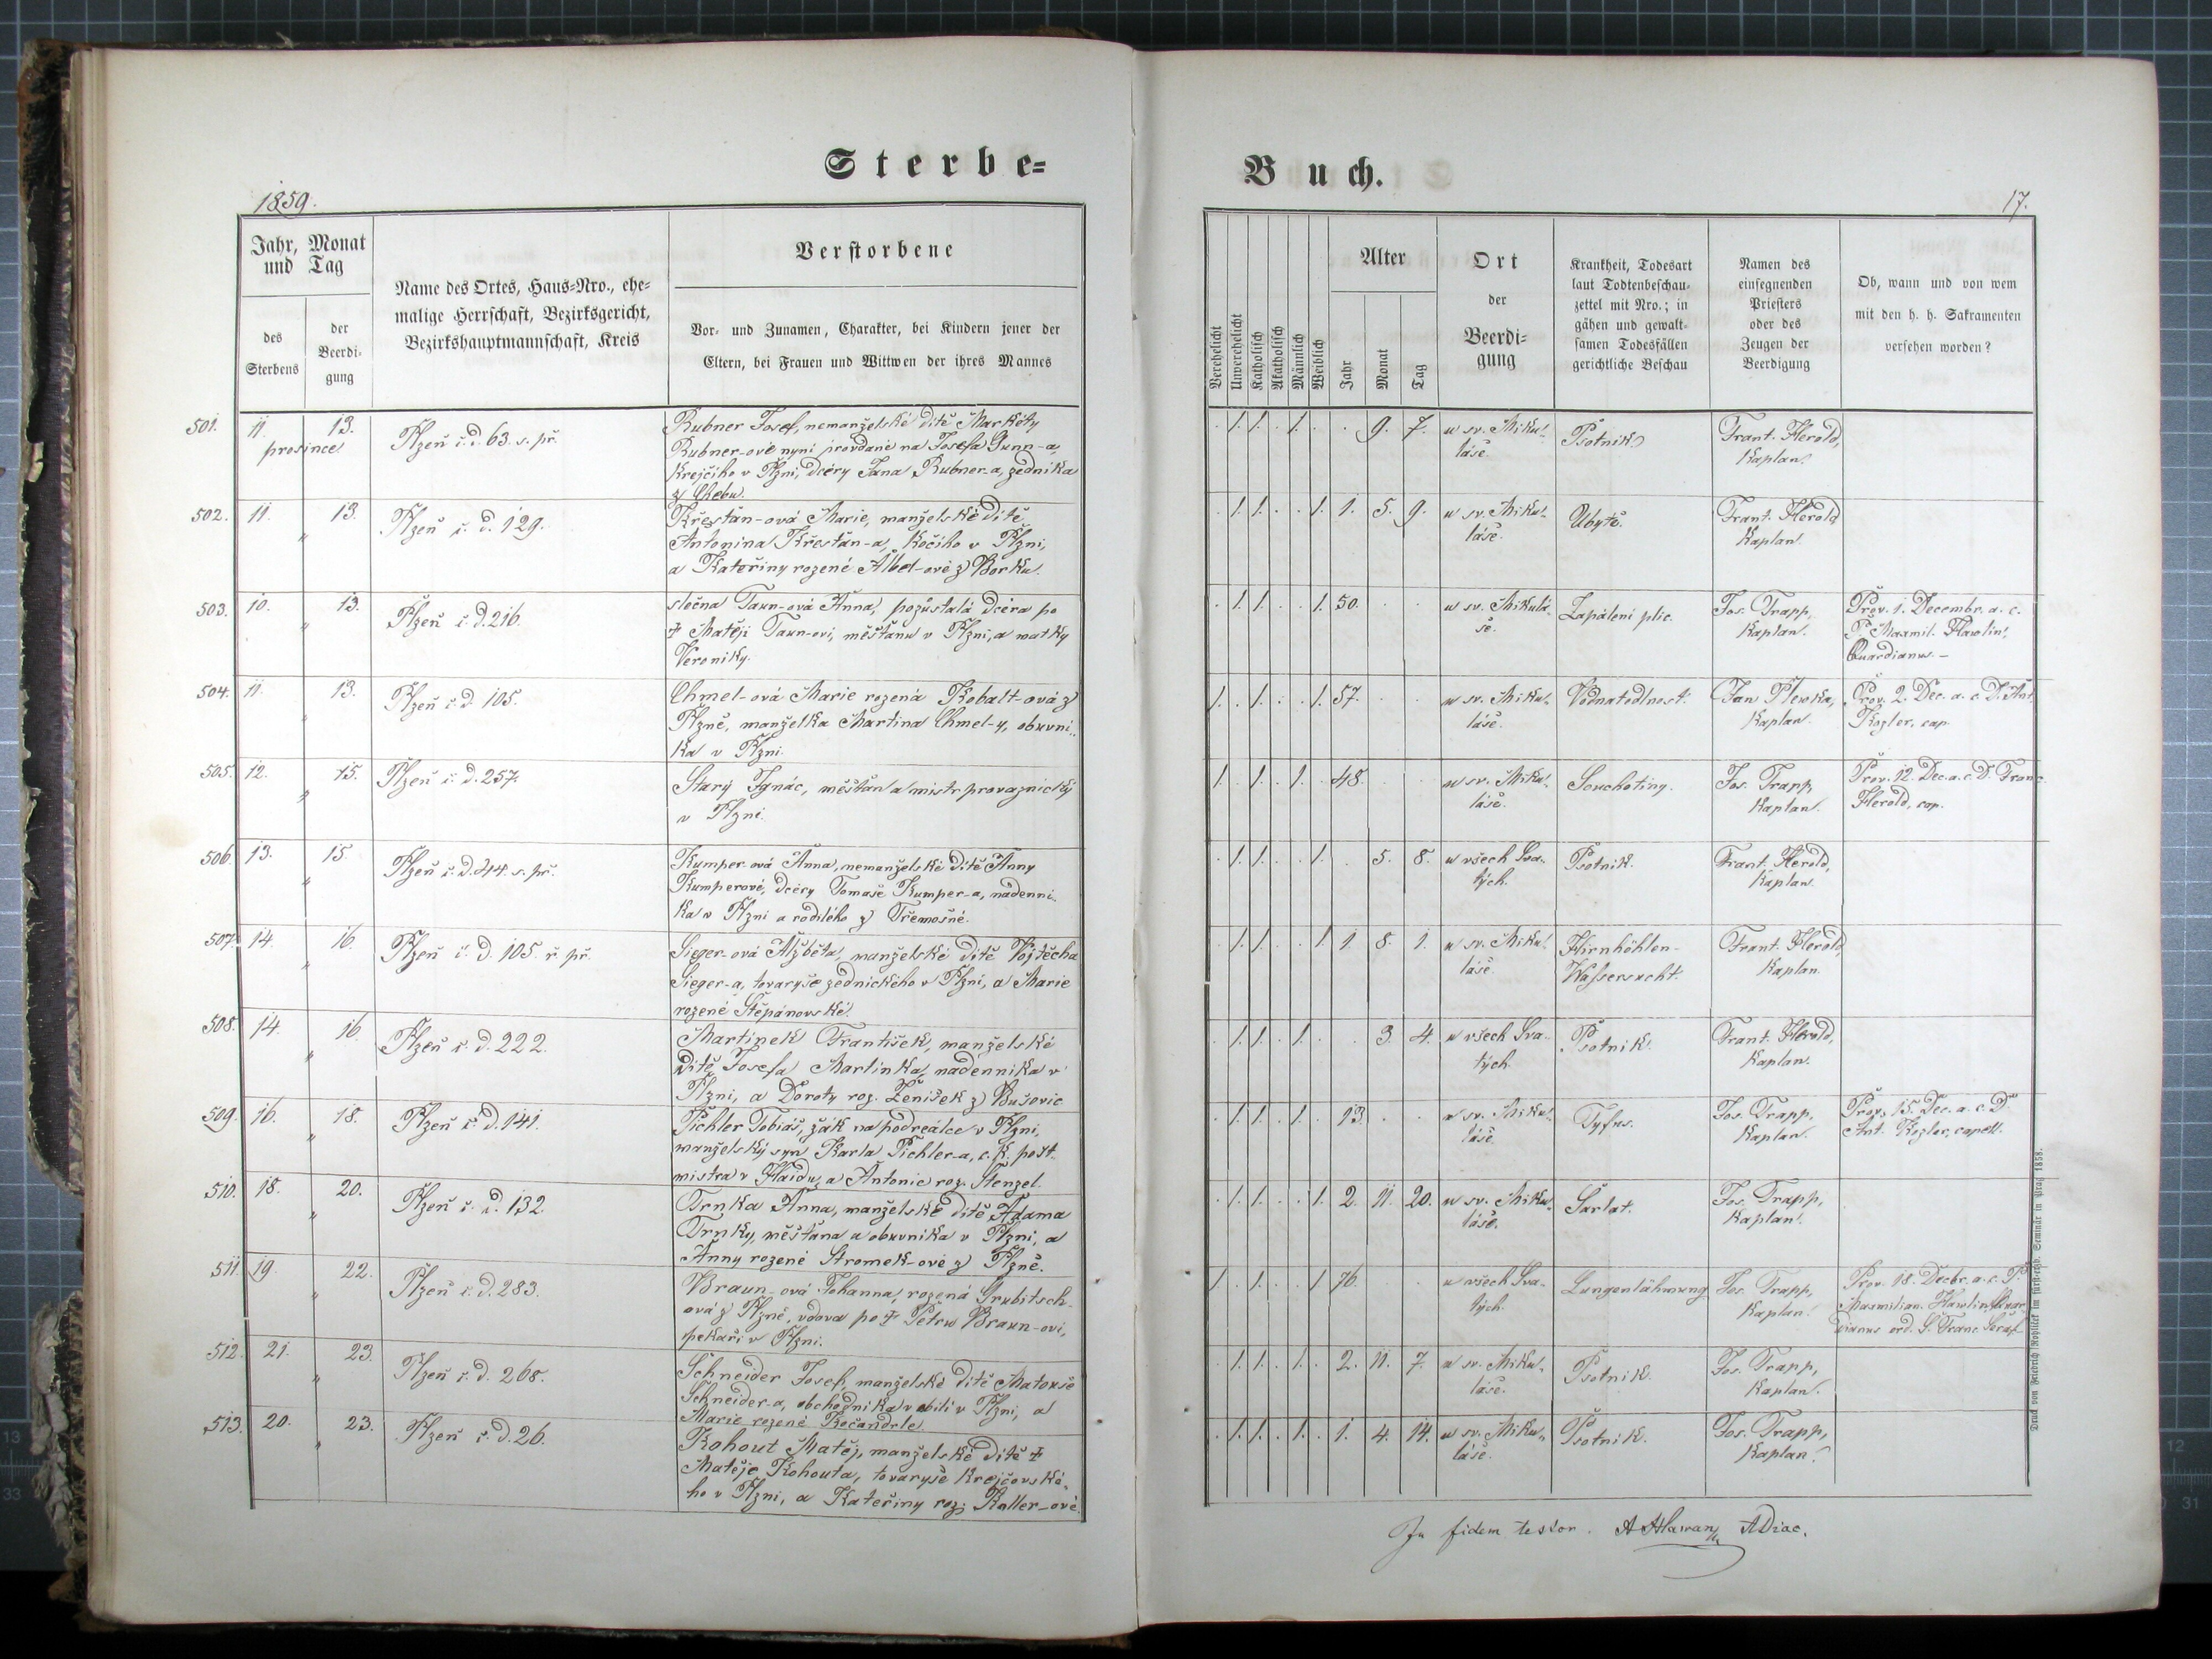 Sterbe=
Buch.
1859.
17.
Jahr, Monat
und Tag
des
Sterbens
der
Beerdi-
gung
Name des Ortes, Haus-Nro., ehe-
malige Herrschaft, Bezirksgericht,
Bezirkshauptmannschaft, Kreis
Verstorbene
Vor- und Zunamen, Charakter, bei Kindern jener der
Eltern, bei Frauen und Wittwen der ihres Mannes
Verehelicht
Unverehelicht
Katholisch
Akatholisch
Männlich
Weiblich
Alter
Jahr
Monat
Tag
Ort
der
Beerdi-
gung
Krankheit, Todesart
laut Todtenbeschau-
zettel mit Nro.; in
gähen und gewalt-
samen Todesfällen
gerichtliche Beschau
Namen des
einsegnenden
Priesters
oder des
Zeugen der
Beerdigung
Ob, wann und von wem
mit den h. h. Sakramenten
versehen worden?
501. 11. 13. Plzeň č. d. 63. s. př.
prosince
Rubner Josef, nemanželské dítě Markéty
Rubner-ové nyní provdané na Josefa Gunn-a,
Krejčího v Plzni, dcery Jana Rubner-a, zedníka
z Chebu.
1. 1. 1. 9. 7. u sv. Miku-
láše.
Psotník
Frant. Herold,
Kaplan.
502. 11. " 13. Plzeň č. d. 129.
Křesťan-ová Marie, manželské dítě
Antonína Křesťan-a, Kočího v Plzni,
a Kateřiny rozené Albel-ové z Borku.
1. 1. 1. 1. 5. 9. u sv. Miku-
láše.
Ubytě.
Frant. Herold
Kaplan.
503. 10. " 13. Plzeň č. d. 216.
slečna Taun-ová Anna, pozůstalá dcéra po
† Matěji Taun-ovi, měšťanu v Plzni, a matky
Veroniky.
1. 1. 1. 50. u sv. Mikulá-
še.
Zapálení plic.
Jos. Trapp,
Kaplan.
Prov. 1. Decembr. a. c.
P. Maxmil. Hawlin,
Quardianus. –
504. 11. " 13. Plzeň č. d. 105.
Chmel-ová Marie rozená Kobalt-ová z
Plzně, manželka Martina Chmel-y, obuvní-
ka v Plzni.
1. 1. 1. 57. u sv. Miku-
láše.
Vodnatedlnost.
Jan Plewka,
Kaplan.
Prov. 2. Dec. a. c. D. Ant.
Kozler, cap.
505. 12. " 15. Plzeň č. d. 257.
Starý Ignác, měšťan a mistr provaznický
v Plzni.
1. 1. 1. 48. u sv. Miku-
láše.
Souchotiny.
Jos. Trapp,
Kaplan.
Prov. 12. Dec. a. c. D. Franc.
Herold, cap.
506. 13. " 15. Plzeň č. d. 44. s. př.
Kumper-ová Anna, nemanželské dítě Anny
Kumperové, dcéry Tomaše Kumper-a, nádenní-
ka v Plzni a rodilého z Třemošné.
1. 1. 1. 5. 8. u všech Sva-
tých.
Psotník.
Frant. Herold,
Kaplan.
507. 14. " 16. Plzeň č. d. 105. ř. př.
Sieger-ová Alžběta, manželské dítě Vojtěcha
Sieger-a, tovaryše zednického v Plzni, a Marie
rozené Štěpánovské.
1. 1. 1. 1. 8. 1. u sv. Miku-
láše.
Hirnhöhlen-
Wassersucht.
Frant. Herold,
Kaplan.
508. 14. " 16. Plzeň č. d. 222.
Martinek František, manželské
dítě Josefa Martinka, nádenníka v
Plzni, a Doroty roz. Ženíšek z Bušovic
1. 1. 1. 3. 4. u všech Sva-
tých.
Psotník.
Frant. Herold,
Kaplan.
509. 16. " 18. Plzeň č. d. 141.
Pichler Tobiáš, žák na podreálce v Plzni,
manželský syn Karla Pichler-a, c. k. pošt-
mistra v Haidu, a Antonie roz. Stenzel.
1. 1. 1. 13. u sv. Miku-
láše.
Tyfus.
Jos. Trapp,
Kaplan.
Prov. 15. Dec. a. c. D.
Ant. Kozler, capell.
510. 18. " 20. Plzeň č. d. 132.
Trnka Anna, manželské dítě Adama
Trnky, měšťana a obuvníka v Plzni, a
Anny rozené Stromek-ové z Plzně.
1. 1. 1. 2. 11. 20. u sv. Miku-
láše.
Šarlat.
Jos. Trapp,
Kaplan.
511. 19. " 22. Plzeň č. d. 283.
Braun-ová Johanna, rozená Grubitsch-
ová z Plzně, vdova po † Petru Braun-ovi,
pekaři v Plzni.
1. 1. 1. 76. u všech Sva-
tých.
Lungenlähmung
Jos. Trapp,
Kaplan.
Prov. 18. Decbr. a. c. P.
Maxmilian. Hawlin, Quar-
dianus ord. S. Franc. Seraf.
512. 21. " 23. Plzeň č. d. 268.
Schneider Josef, manželské dítě Matouše
Schneider-a, obchodníka v obilí v Plzni, a
Marie rozené Kočandrle
1. 1. 1. 2. 11. 7. u sv. Miku-
láše.
Psotník.
Jos. Trapp,
Kaplan.
513. 20. " 23. Plzeň č. d. 26.
Kohout Matěj, manželské dítě †
Matěje Kohouta, tovaryše Krejčovské-
ho v Plzni, a Kateřiny roz. Koller-ové.
1. 1. 1. 1. 4. 14. u sv. Miku-
láše.
Psotník.
Jos. Trapp,
Kaplan.
In fidem testor. A Hlawan ADiac.
Druck von Friedrich Rohliček im fürst-erzb. Seminär in Prag 1858.